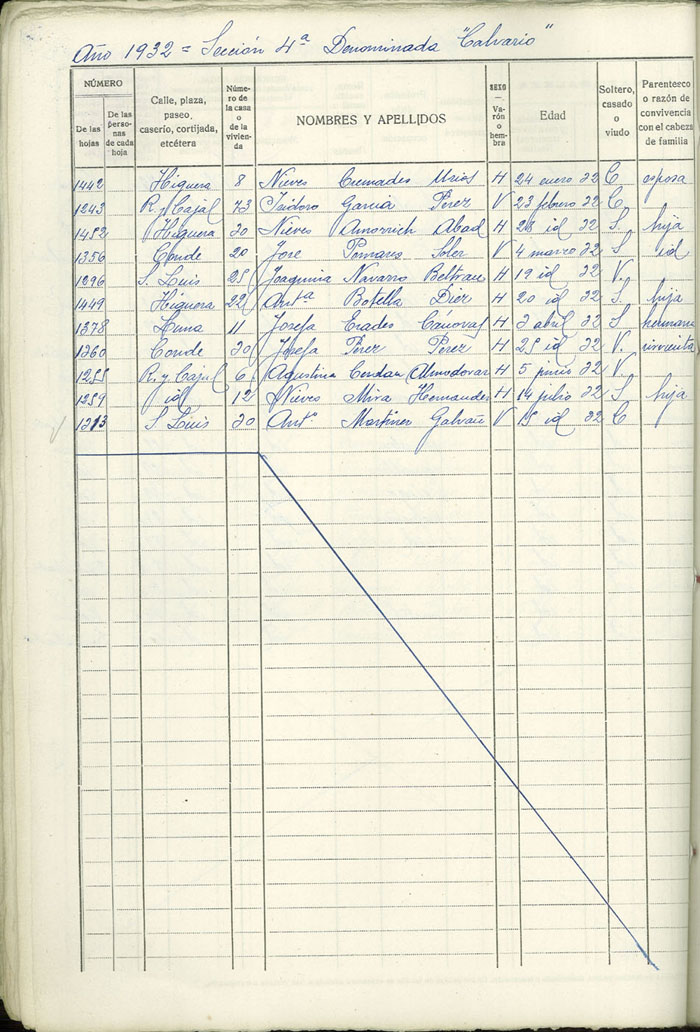 Año 1932 = Sección 4ª Denominada "Calvario"
NÚMERO
De las hojas
De las personas de cada hoja
Calle, plaza, paseo, caserío, cortijada, etcétera
Número de la casa o de la vivienda
NOMBRES Y APELLIDOS
SEXO — Varón o hembra
Edad
Soltero, casado o viudo
Parentesco o razón de convivencia con el cabeza de familia
1442 Higuera 8 Nieves Cremades Urios H 24 enero 32 C esposa
1243 R. y Cajal 73 Isidoro Garcia Perez V 23 febrero 32 C.
1452 Higuera 30 Nieves Amorrich Abad H 28 id 32 S. hija
1356 Conde 20 Jose Pomares Soler V 4 marzo 32 S id
1296 S. Luis 25 Joaquina Navarro Beltran H 19 id 32 V.
1449 Higuera 22 Antª Botella Diez H 20 id 32 S. hija
1378 Luna 11 Josefa Erades Cánovas H 3 abril 32 S hermana
1360 Conde 30 Josefa Pérez Pérez H 25 id 32 V. sirvienta
1255 R. y Cajal 6 Agustina Cerdan Almodovar H 5 junio 32 V
1259 id 12 Nieves Mira Hernandez H 14 julio 32 S hija
1313 S Luis 30 Antº Martinez Galvañ V 15 id 32 C